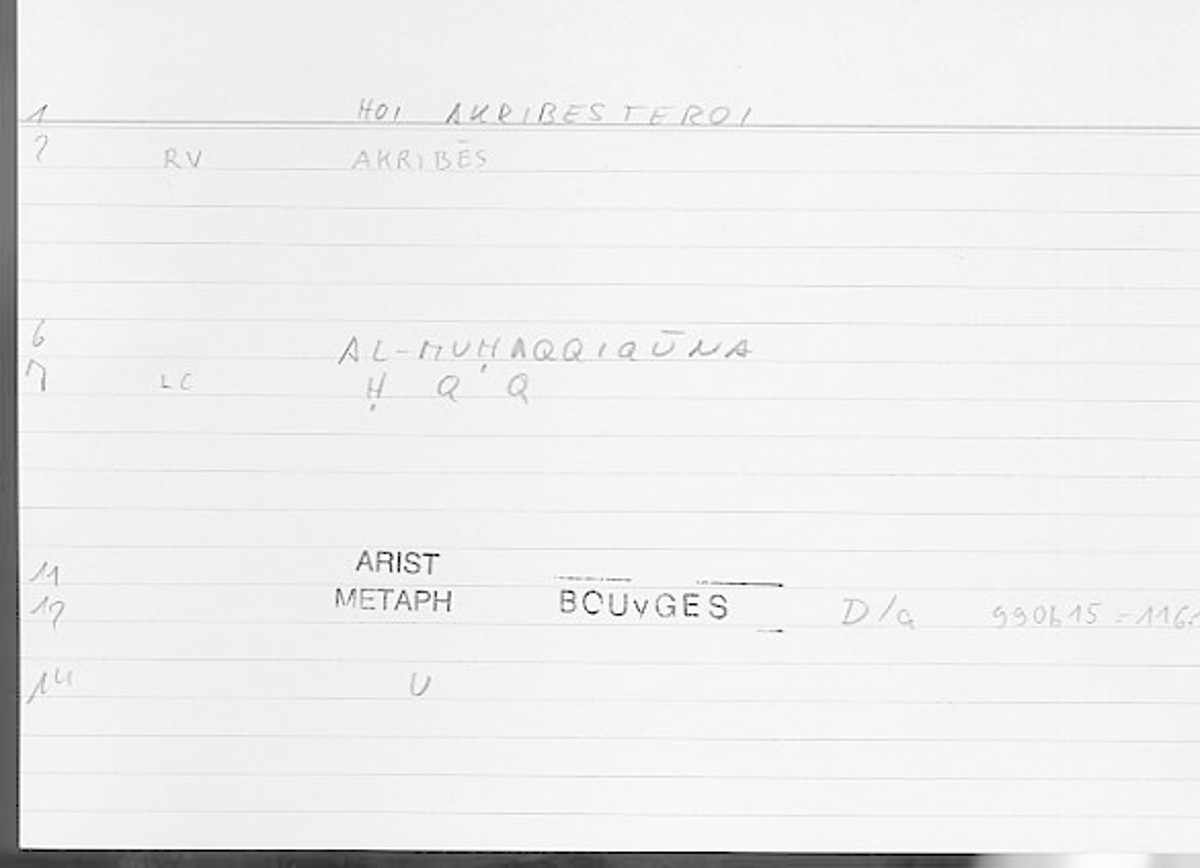 1 HOI AKRIBESTEROI
2 RV AKRIBĒS
6 AL-MUḤAQQIQŪNA
7 LC Ḥ Q Q
11 ARIST
12 METAPH BOUYGES D/a 990b15 =
14 U